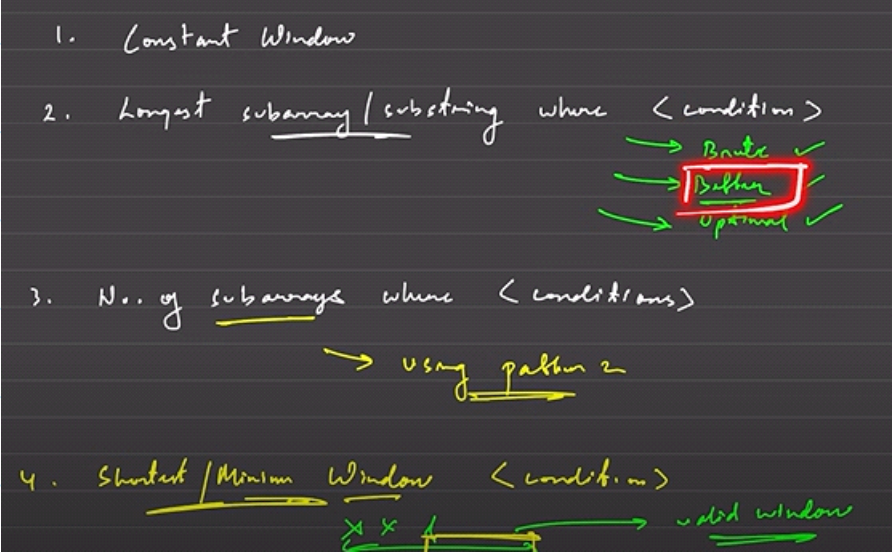 1. Constant Window
2. Longest subarray / substring where <condition>
→ Brute ✓
→ Better ✓
→ Optimal ✓
3. No. of subarrays where <conditions>
→ using pattern 2
4. Shortest / Minimum Window <condition>
x x → valid window